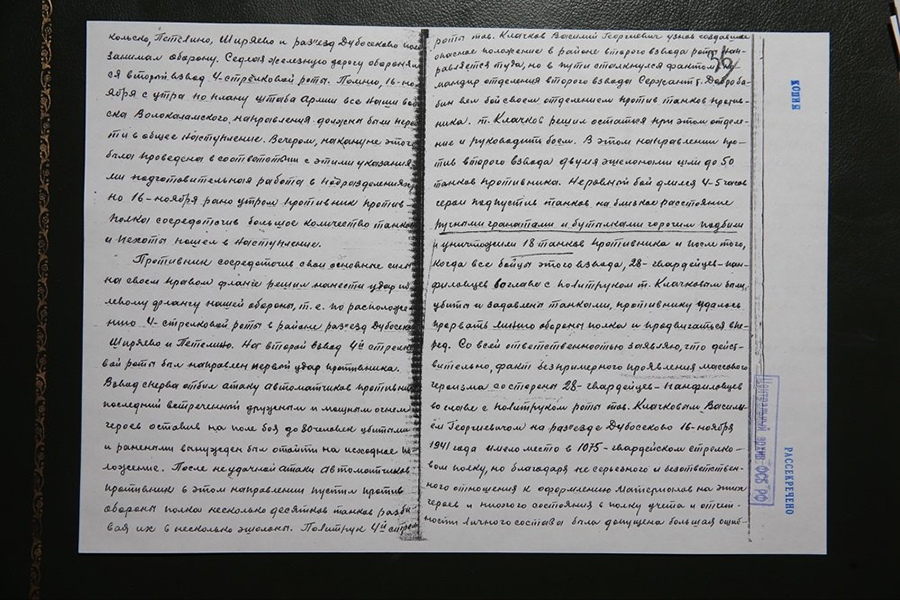 кольско, Петелино, Ширяево и разъезд Дубосеково
занимал оборону. Седлая железную дорогу оборонял
ся второй взвод 4-стрелковой роты. Помню, 16-но-
ября с утра по плану штаба Армии все наши вой
ска Волоколамского, направления должны были пере
ти в общее наступление. Вечером, на кануне этого
была проведена в соответствии с этими указания
ми подготовительная работа в подразделениях
но 16-ноября рано утром противник против-
полка сосредоточив большое количество танков
и пехоты пошел в наступление.
Противник сосредоточив свои основные силы
на своем правом фланге решил нанести удар по
левому флангу нашей обороны, т.е. по расположе-
нию 4-стрелковой роты в районе разъезд Дубосеко
Ширяево и Петелино. На второй взвод 4й стрелк
вой роты был направлен первый удар противника.
Взвод сперва отбил атаку автоматчиков противника
последний встреченный дружным и мощным огнем
героев оставив на поле боя до 80 человек убитыми
и ранеными вынужден был отойти на исходное по
ложение. После неудачной атаки автоматчиков
противник в этом направлении пустил против
обороны полка несколько десятков танков разби
вая их в несколько эшелоны. Политрук 4й стрел
роты тов. Клачков Василий Георгиевич узнав создавшее
опасное положение в районе второго взвода роты нап-
равляется туда, но в пути столкнулся фактом
56
мандир отделения второго взвода Сержант т. Доброба-
бин вел бой своем отделением против танков против-
ника. т. Клачков решил остаться при этом отделе-
ние и руководить боем. В этом направлении про-
тив второго взвода двумя эшелонами шли до 50
танков противника. Неровный бой длился 4-5 часов
герои подпустив танков на близкое расстояние
ручными гранатами и бутылками горючим подбили
и уничтожили 18 танков противника и после того,
когда все бойцы этого взвода, 28-гвардейцев-пан-
филовцев во главе с политруком т. Клачковым были
убиты и задавлены танками, противнику удалось
прервать линию обороны полка и продвигаться впе-
ред. Со всей ответственностью заявляю, что дейст-
вительно, факт беспримерного проявления массового
героизма со стороны 28-гвардейцев-панфиловцев
во главе с политруком роты тов. Клачковым Васили
ем Георгиевичем на разъезде Дубосеково 16-ноября
1941 года имело место в 1075-гвардейском стрелко-
вом полку, но благодаря не серьезного и безответствен-
ного отношения к оформлению материалов на этих
героев и плохого состояния в полку учета и отчет-
ности личного состава была допущена большая ошиб-
КОПИЯ
Центральный архив ФСБ РФ
РАССЕКРЕЧЕНО